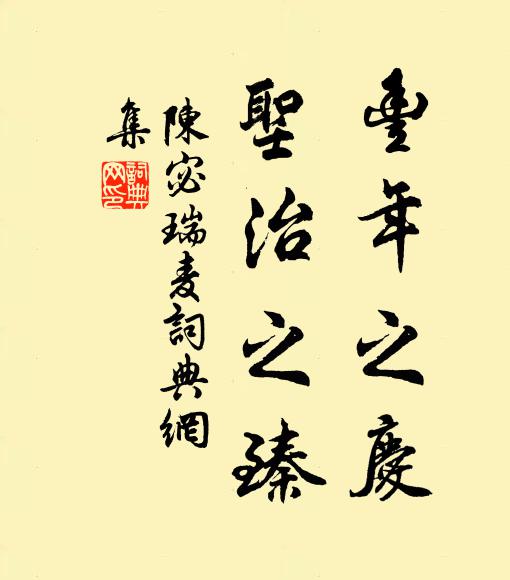 豐年之慶
聖治之臻
陳宓瑞麦詞典網
集
詞典
网印